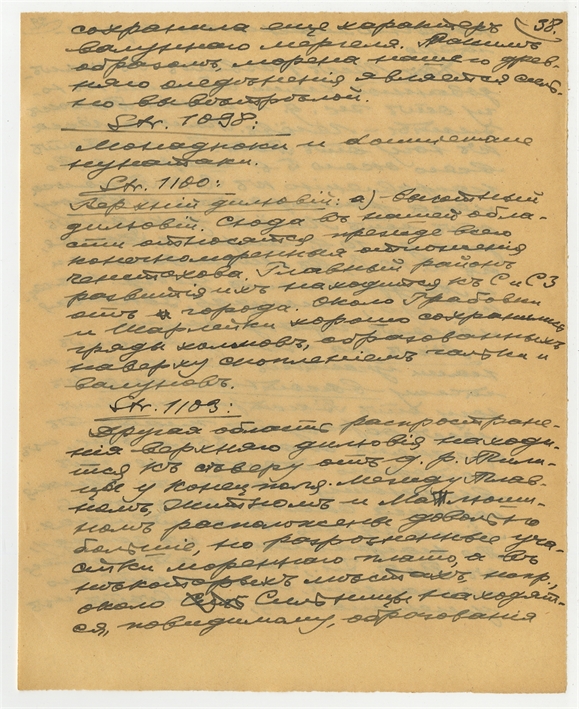 38.
сохранила еще характеръ
валуннаго мергеля. Такимъ
образомъ, морена нашего древ-
няго оледѣненія является силь-
но вывѣтрѣлой.
Str. 1098:
Монадноки и
нунатаки.
Str. 1100:
Верхній дилювій: а) - высотный
дилювій. Сюда въ нашей обла-
сти относятся прежде всего
конечноморенныя отложенія
Ченстахова. Главный районъ
развитія ихъ находится къ С и СЗ
отъ города. Около Грабовки
и Шарлейки хорошо сохранились
гряды холмовъ, образованныхъ
наверху скопленіемъ гальки и
валуновъ.
Str. 1103:
Другая область распростране-
нія верхняго дилювія находи-
тся къ сѣверу отъ д. р. Пили-
цы у Конецполя. Между Глав-
номъ, Житномъ и
расположены довольно
большіе, но разрозненные уча-
стки мореннаго плато, а въ
нѣкоторыхъ мѣстахъ напр.,
около находят-
ся, повидимому, образованія